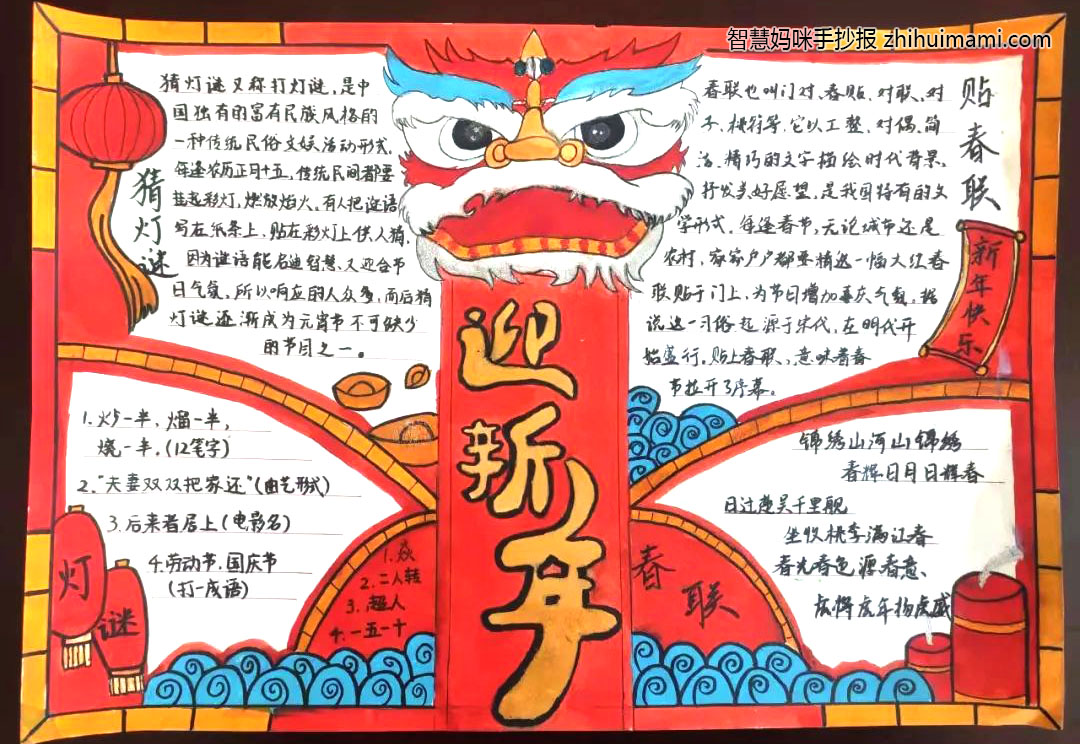 智慧妈咪手抄报 zhihuimami.com
猜灯谜
猜灯谜又称打灯谜,是中
国独有的富有民族风格的
一种传统民俗文娱活动形式,
每逢农历正月十五,传统民间都要
挂起彩灯,燃放焰火,有人把谜语
写在纸条上,贴在彩灯上供人猜,
因为谜语能启迪智慧,又迎合节
日气氛,所以响应的人众多,而后猜
灯谜逐渐成为元宵节不可缺少
的节目之一。
贴春联
春联也叫门对、春贴、对联、对
子、桃符等,它以工整、对偶、简
洁、精巧的文字描绘时代背景,
抒发美好愿望,是我国特有的文
学形式。每逢春节,无论城市还是
农村,家家户户都要精选一幅大红春
联贴于门上,为节日增加喜庆气氛。据
说这一习俗起源于宋代,在明代开
始盛行,贴上春联,意味着春
节拉开了序幕。
新年快乐
迎新年
1.炒一半,熘一半,
烧一半。(12笔字)
2."夫妻双双把家还"(曲艺形式)
3.后来者居上(电影名)
4.劳动节.国庆节
(打一成语)
灯谜
1.焱
2.二人转
3.超人
4.一五一十
春联
锦绣山河山锦绣
春辉日月日辉春
日过楚吴千里舰
坐收桃李满江春
春光春色源春意、
虎将虎年扬虎威